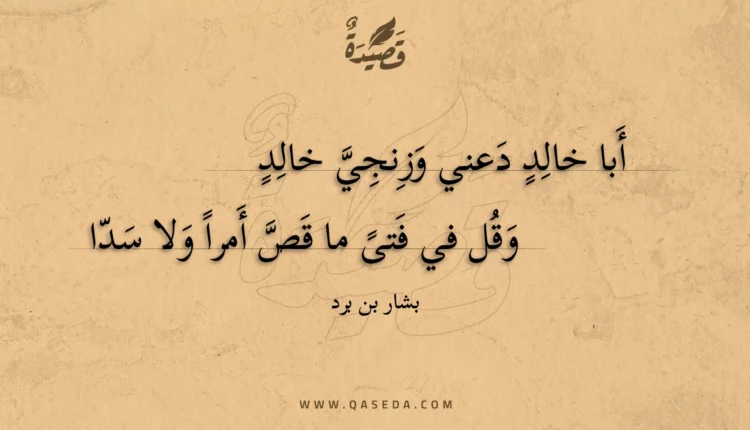 قَصِيْدَةٌ
أَبا خالِدٍ دَعني وَزِنجِيَّ خالِدٍ
وَقُل في فَتىً ما قَصَّ أَمراً وَلا سَدّا
بشار بن برد
WWW.QASEDA.COM